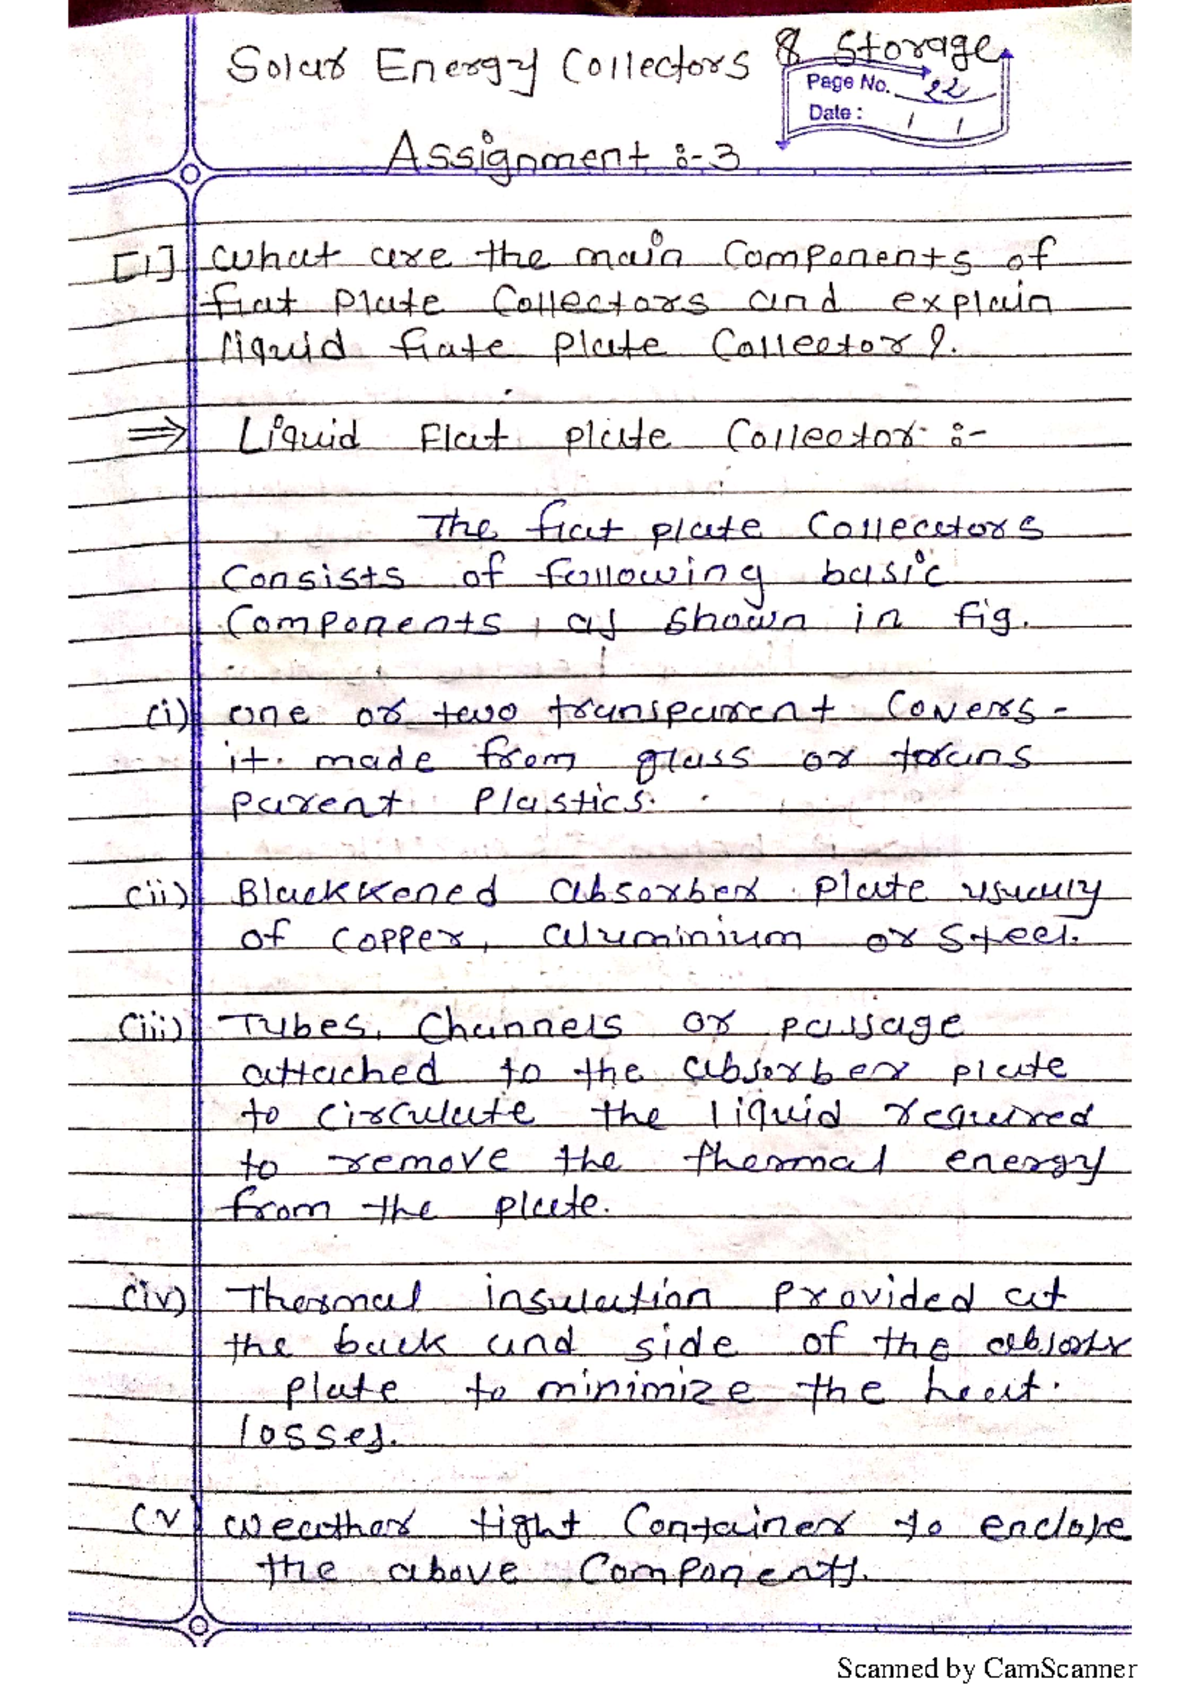 Solar Energy Collectors & Storage
Page No. 22
Date : / /
Assignment :- 3
[1] What are the main Components of
flat Plate Collectors and explain
liquid flate plate Collector ?.
⇒ Liquid Flat plate Collector :-
The flat plate Collecetors
Consists of following basic
Components, as shown in fig.
(i) one or two transparent Covers -
it. made from glass or trans
parent Plastics.
(ii) Blackkened absorber plate usually
of copper, aluminium or steel.
(iii) Tubes, Channels or passage
attached to the absorber plate
to circulate the liquid required
to remove the thermal energy
from the plate.
(iv) Thermal insulation Provided at
the back and side of the absorber
plate to minimize the heat.
losses.
(v) Weather tight Container to enclose
the above Components.
Scanned by CamScanner